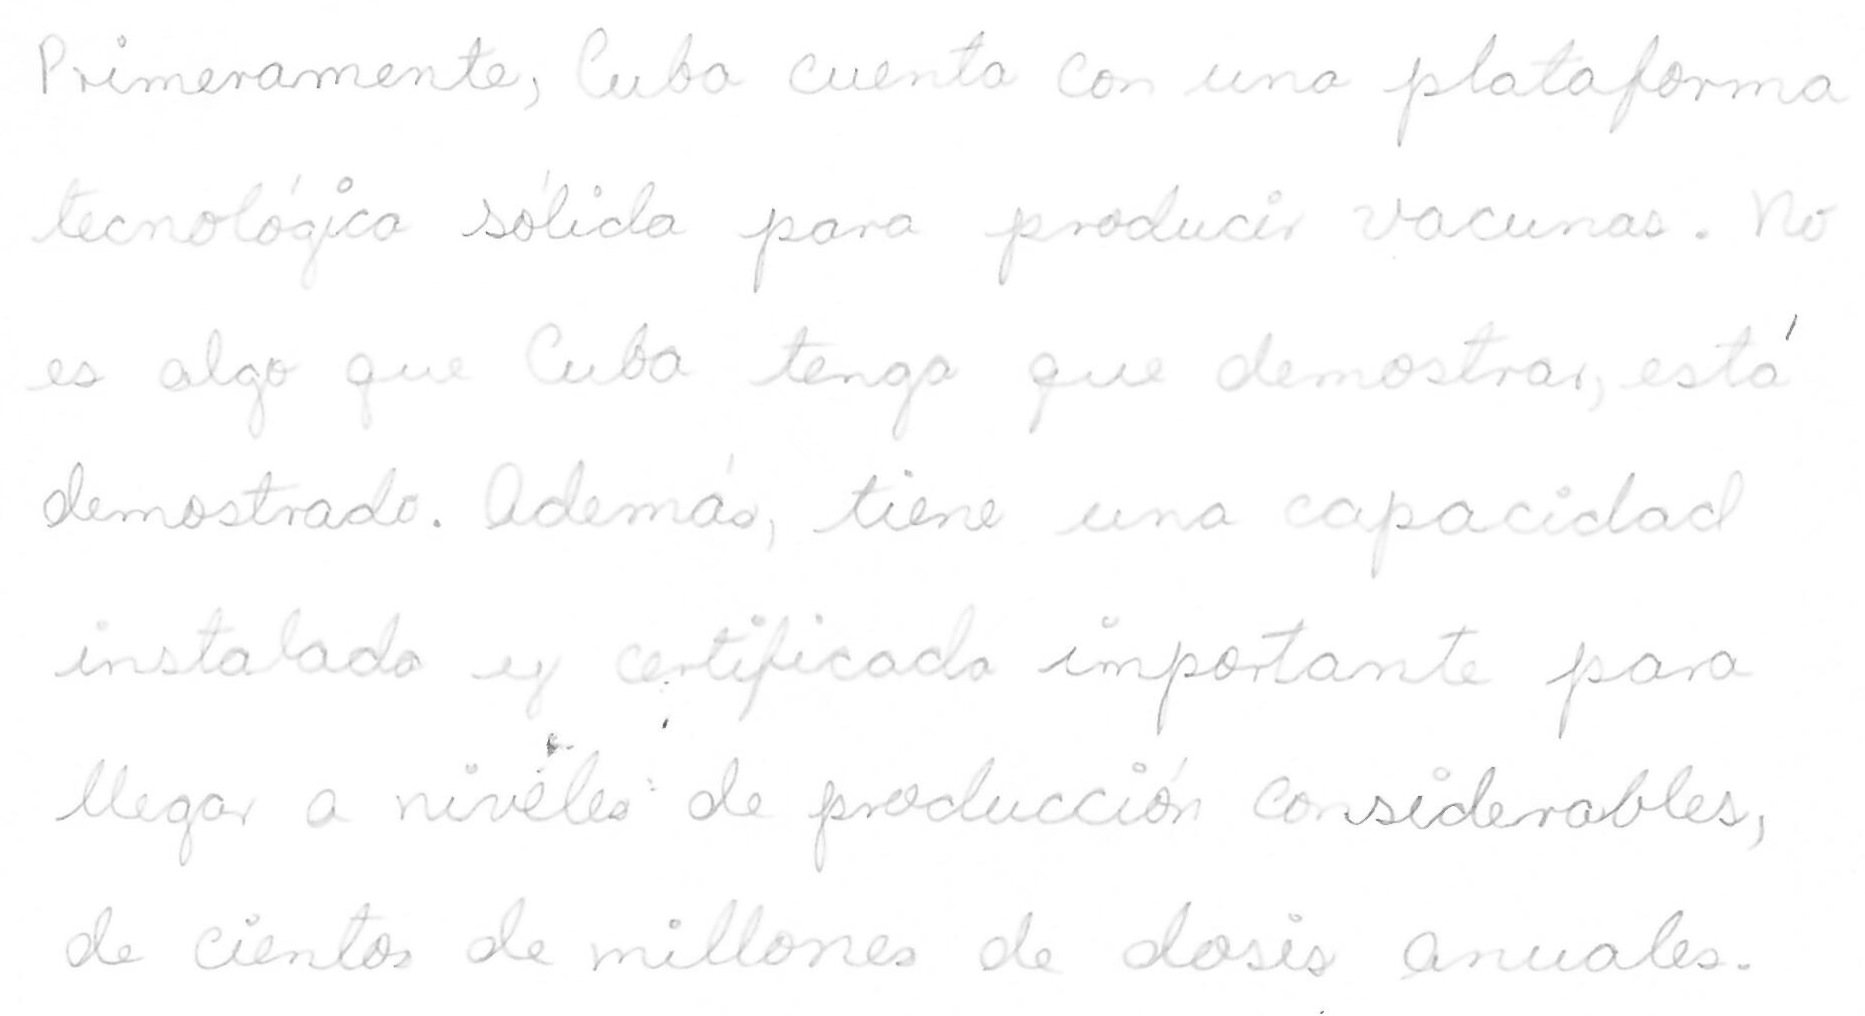 Primeramente, Cuba cuenta con una plataforma
tecnológica sólida para producir vacunas. No
es algo que Cuba tenga que demostrar, está
demostrado. Además, tiene una capacidad
instalada y certificada importante para
llegar a niveles de producción considerables,
de cientos de millones de dosis anuales.